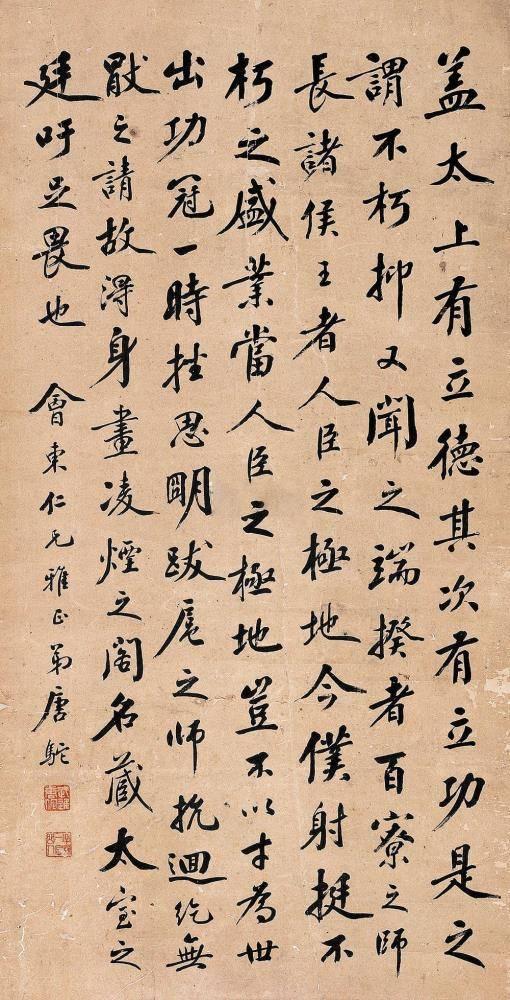 蓋太上有立德其次有立功是之
謂不朽抑又聞之端揆者百寮之師
長諸侯王者人臣之極地今僕射挺不
朽之盛業當人臣之極地豈不以才為世
出功冠一時挫思明跋扈之師抗迴紇無
猒之請故得身畫凌煙之閣名藏太室之
廷吁足畏也
會東仁兄雅正 弟唐駝